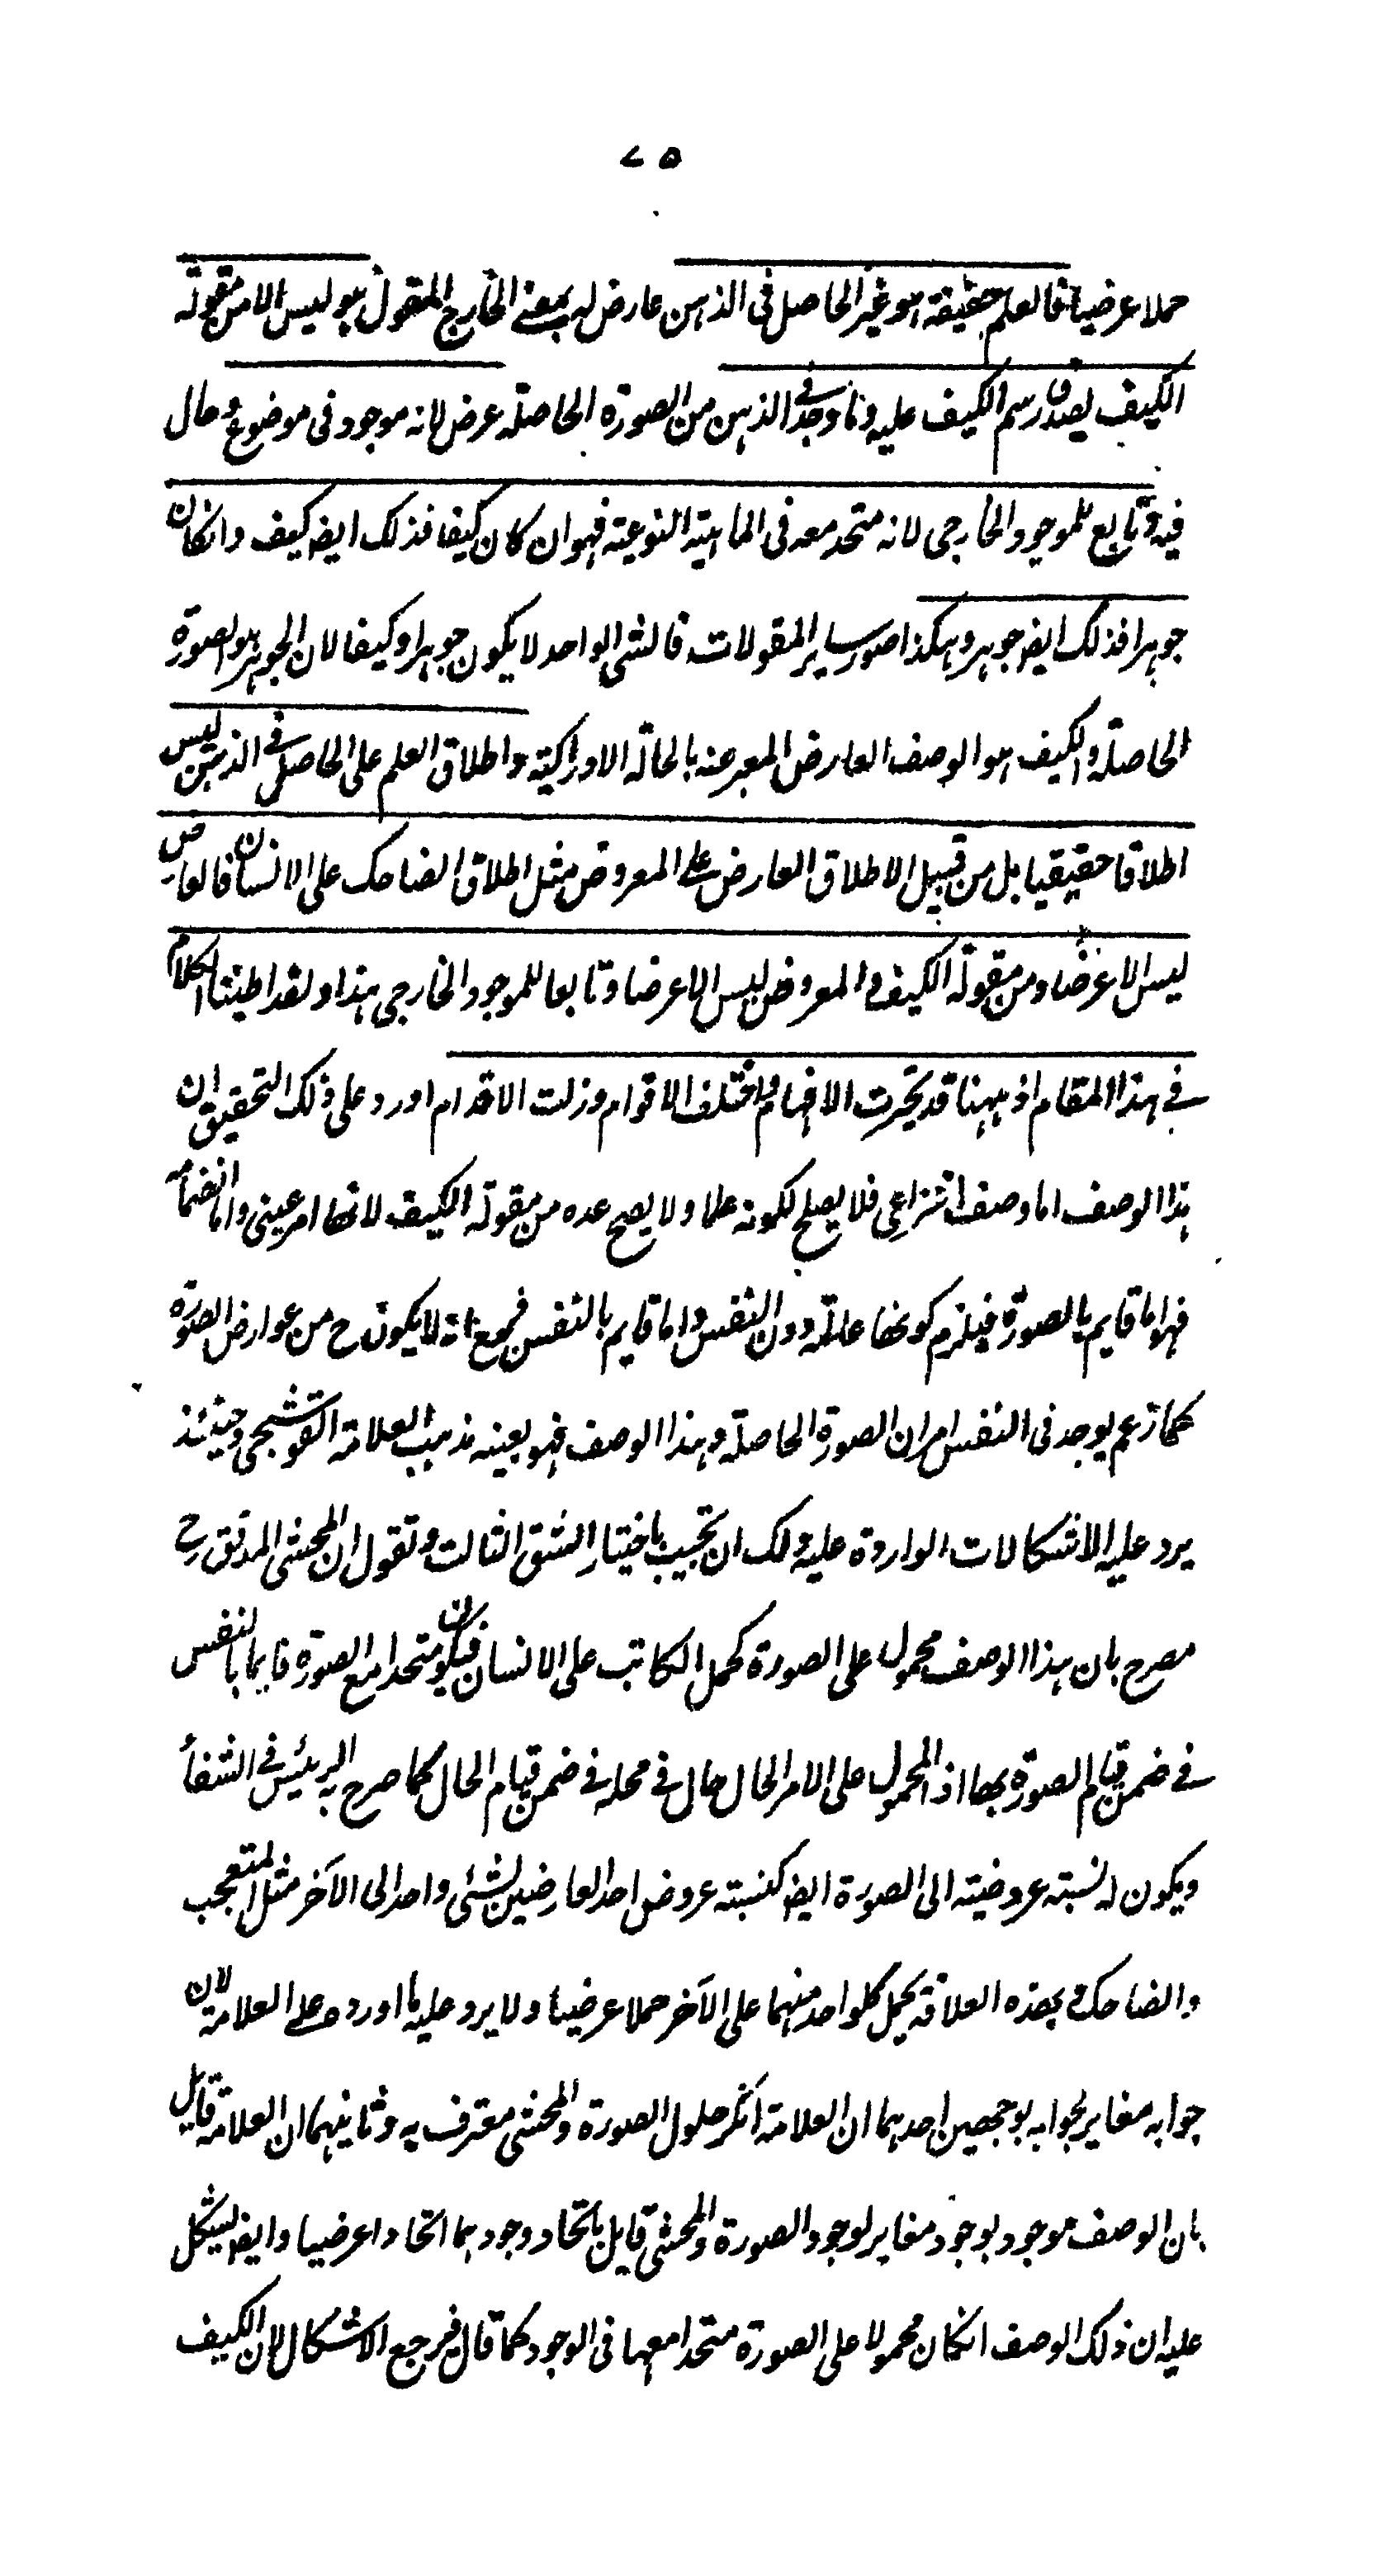 ٧٥
حملا عرضيا فالعلم حقيقة هو غير الحاصل فى الذهن عارض له بمعنى الخارج المقول هو ليس الا من مقولة
الكيف يصدق رسم الكيف عليه وما وجد فى الذهن من الصورة الحاصلة عرض لانه موجود فى موضوع وحال
فيه وتابع للموجود الخارجى لانه متحد معه فى الماهية النوعية فهو ان كان كيفا فذلك ايض كيف وانكان
جوهرا فذلك ايض جوهر وهكذا صور ساير المقولات فالشى الواحد لا يكون جوهرا وكيفا لان الجوهر هو الصورة
الحاصلة والكيف هو الوصف العارض المعبر عنه بالحالة الادراكية واطلاق العلم على الحاصل فى الذهن ليس
اطلاقا حقيقيا بل من قبيل الاطلاق العارض على المعروض مثل اطلاق الضاحك على الانسان فالعارض
ليس الا عرضا ومن مقولة الكيف والمعروض ليس الا عرضا وتابعا للموجود الخارجى هذا ولقد اطنبنا الكلام
فى هذا المقام اذ ههنا قد تحيرت الافهام واختلف الاقوام وزلت الاقدام اورد على ذلك التحقيق ان
هذا الوصف اما وصف انتزاعى فلا يصلح لكونه علما ولا يصح عده من مقولة الكيف لانها امر عينى واما انضمامى
فهو اما قايم بالصورة فيلزم كونها عالمة دون النفس واما قايم بالنفس فمع انه لا يكون ح من عوارض الصورة
كما زعم يوجد فى النفس امران الصورة الحاصلة وهذا الوصف فهو بعينه مذهب العلامة القوشجى وحينئذ
يرد عليه الاشكالات الواردة عليه ولك ان تجيب باختيار الشق الثالث وتقول ان المحشى المدقق رح
مصرح بان هذا الوصف محمول على الصورة كحمل الكاتب على الانسان فيكون متحدا مع الصورة قايما بالنفس
فى ضمن قيام الصورة بها اذ المحمول على الامر الحال حال فى محله فى ضمن قيام الحال كما صرح به الرئيس فى الشفاء
ويكون له نسبته عروضيته الى الصورة ايض كنسبته عروض احد العارضين لشئى واحد الى الآخر مثل المتعجب
والضاحك وبهذه العلاقة يحمل كلواحد منهما على الآخر حملا عرضيا ولا يرد عليه ما اورده على العلامة لان
جوابه مغاير لجوابه بوجهين احدهما ان العلامة انكر حلول الصورة والمحشى معترف به وثانيهما ان العلامة قايل
بان الوصف موجود بوجود مغاير لوجود الصورة والمحشى قايل باتحاد وجودهما اتحادا عرضيا وايض يشكل
عليه ان ذلك الوصف انكان محمولا على الصورة متحدا معها فى الوجود كما قال فيرجع الاشكال لان الكيف